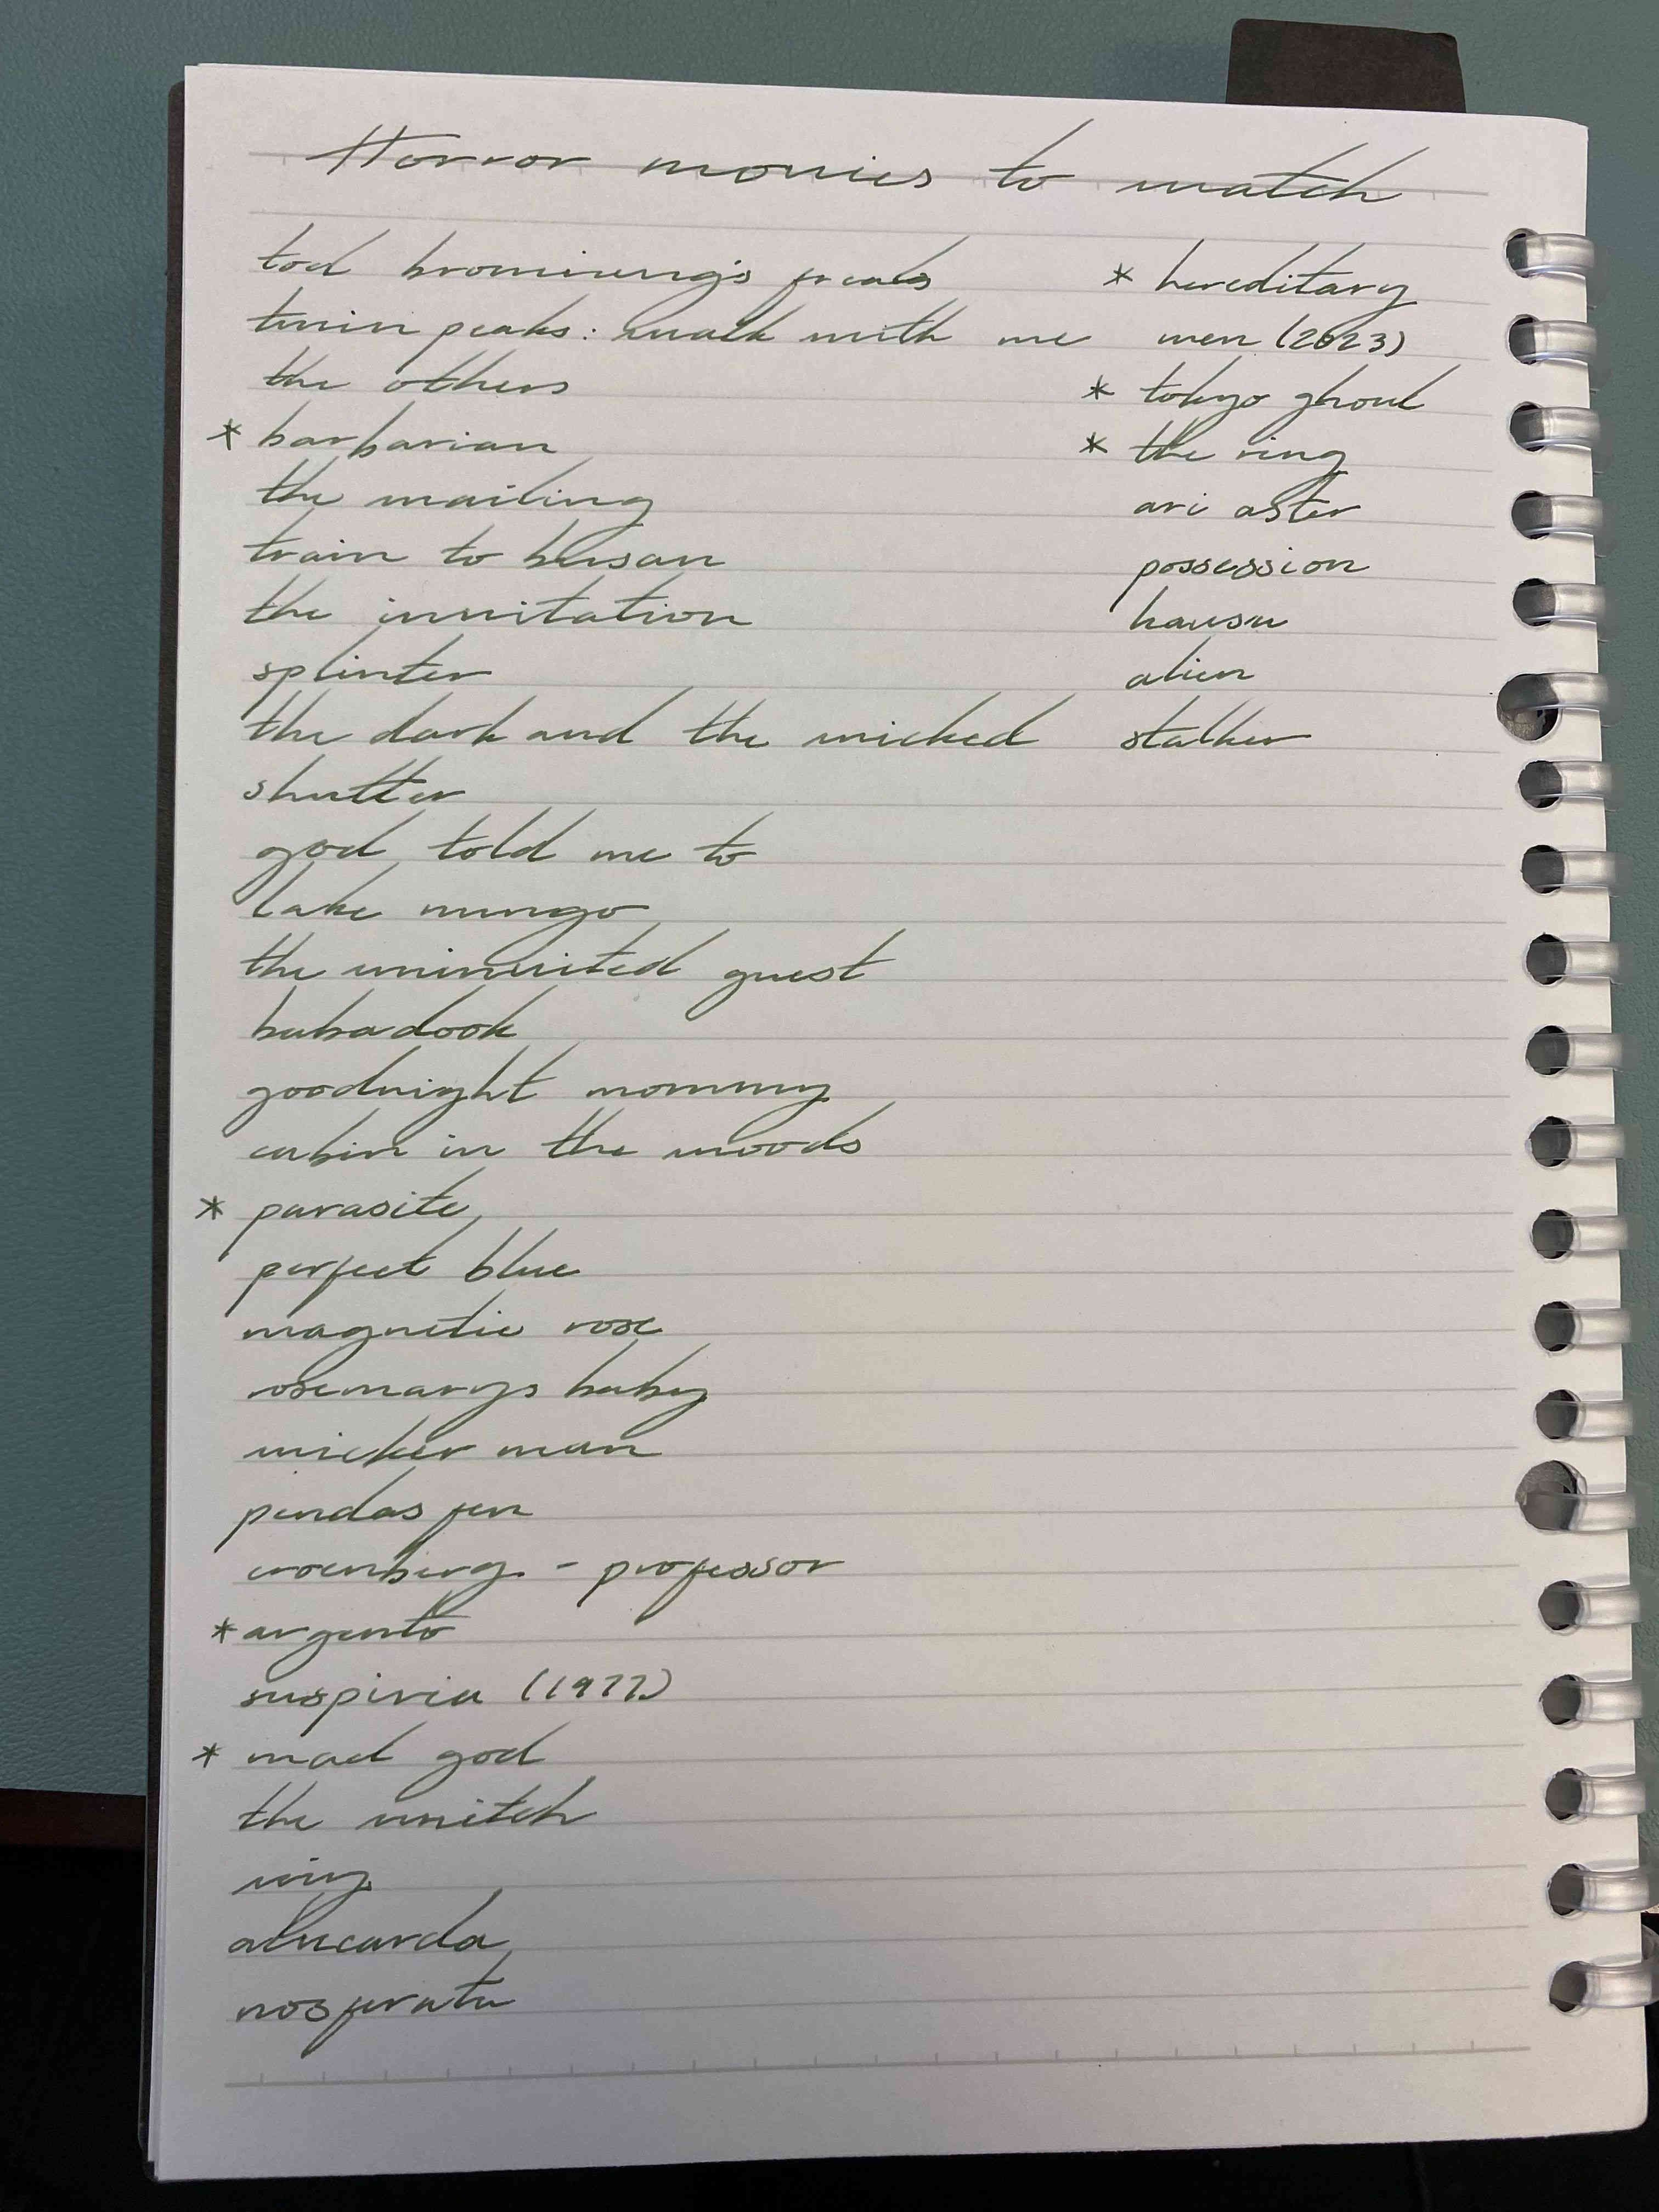 Horror movies to watch
tod browning's freaks
twin peaks: walk with me
the others
* barbarian
the wailing
train to busan
the invitation
splinter
the dark and the wicked
shutter
god told me to
lake mungo
the uninvited guest
babadook
goodnight mommy
cabin in the woods
* parasite
perfect blue
magnetic rose
rosemarys baby
wicker man
pendas fen
cronenberg - professor
* argento
suspiria (1977)
* mad god
the witch
alucarda
nosferatu
* hereditary
men (2023)
* tokyo ghoul
* the ring
ari aster
possession
hausu
alien
stalker